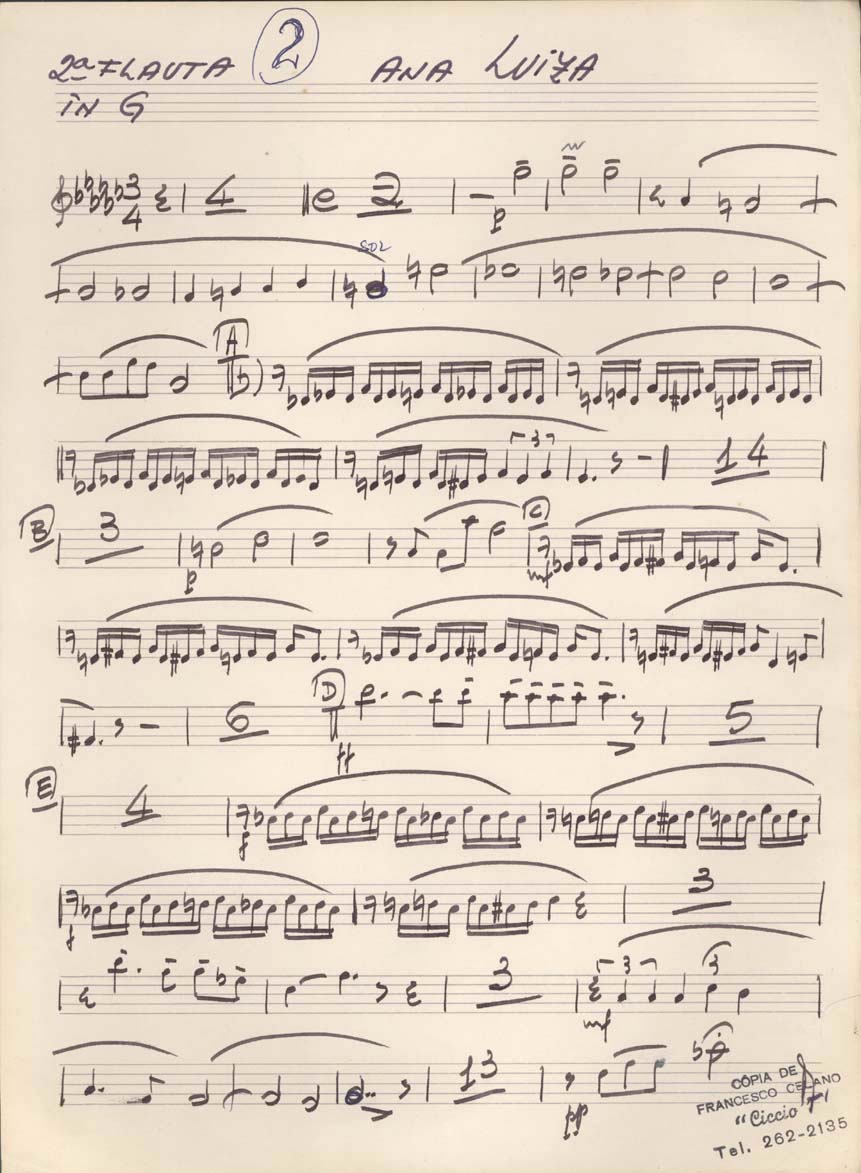 2ª FLAUTA 2 ANA LUIZA
IN G
3
4
4
2
p
SOL
A
3
14
B
3
p
C
mf
6
D
ff
5
E
4
f
f
3
3
3
3
mf
13
pp
CÓPIA DE
FRANCESCO CELANO
"Ciccio"
Tel. 262-2135